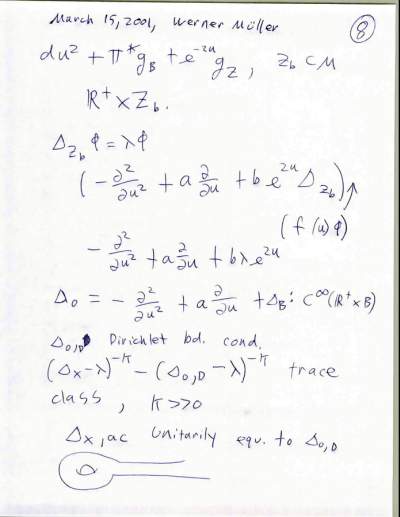 March 15, 2001, Werner Müller
⑧
du² + π*g_B + e^{-2u} g_Z, Z_b ⊂ M
ℝ⁺ × Z_b.
Δ_{Z_b} φ = λφ
(-∂²/∂u² + a ∂/∂u + b e^{2u} Δ_{Z_b})
(f(u)φ)
-∂²/∂u² + a ∂/∂u + bλe^{2u}
Δ₀ = -∂²/∂u² + a ∂/∂u + Δ_B : C^∞(ℝ⁺×B)
Δ_{0,D} Dirichlet bd. cond.
(Δ_X - λ)^{-k} - (Δ_{0,D} - λ)^{-k} trace
class, k>>0
Δ_{X,ac} Unitarily equ. to Δ_{0,D}